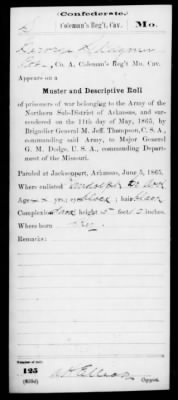 Confederate.
Coleman's Reg't, Cav. Mo.
Co. A, Coleman's Reg't Mo. Cav.
Appears on a
Muster and Descriptive Roll
of prisoners of war belonging to the Army of the
Northern Sub-District of Arkansas, and sur-
rendered on the 11th day of May, 1865, by
Brigadier General M. Jeff. Thompson, C. S. A.,
commanding said Army, to Major General
G. M. Dodge, U. S. A., commanding Depart-
ment of the Missouri.
Paroled at Jacksonport, Arkansas, June 5, 1865.
Where enlisted Randolph Co
Age yrs; eyes black; hair black
Complexion dark height 5 feet inches.
Where born
Remarks:
Number of roll:
125
Copyist.